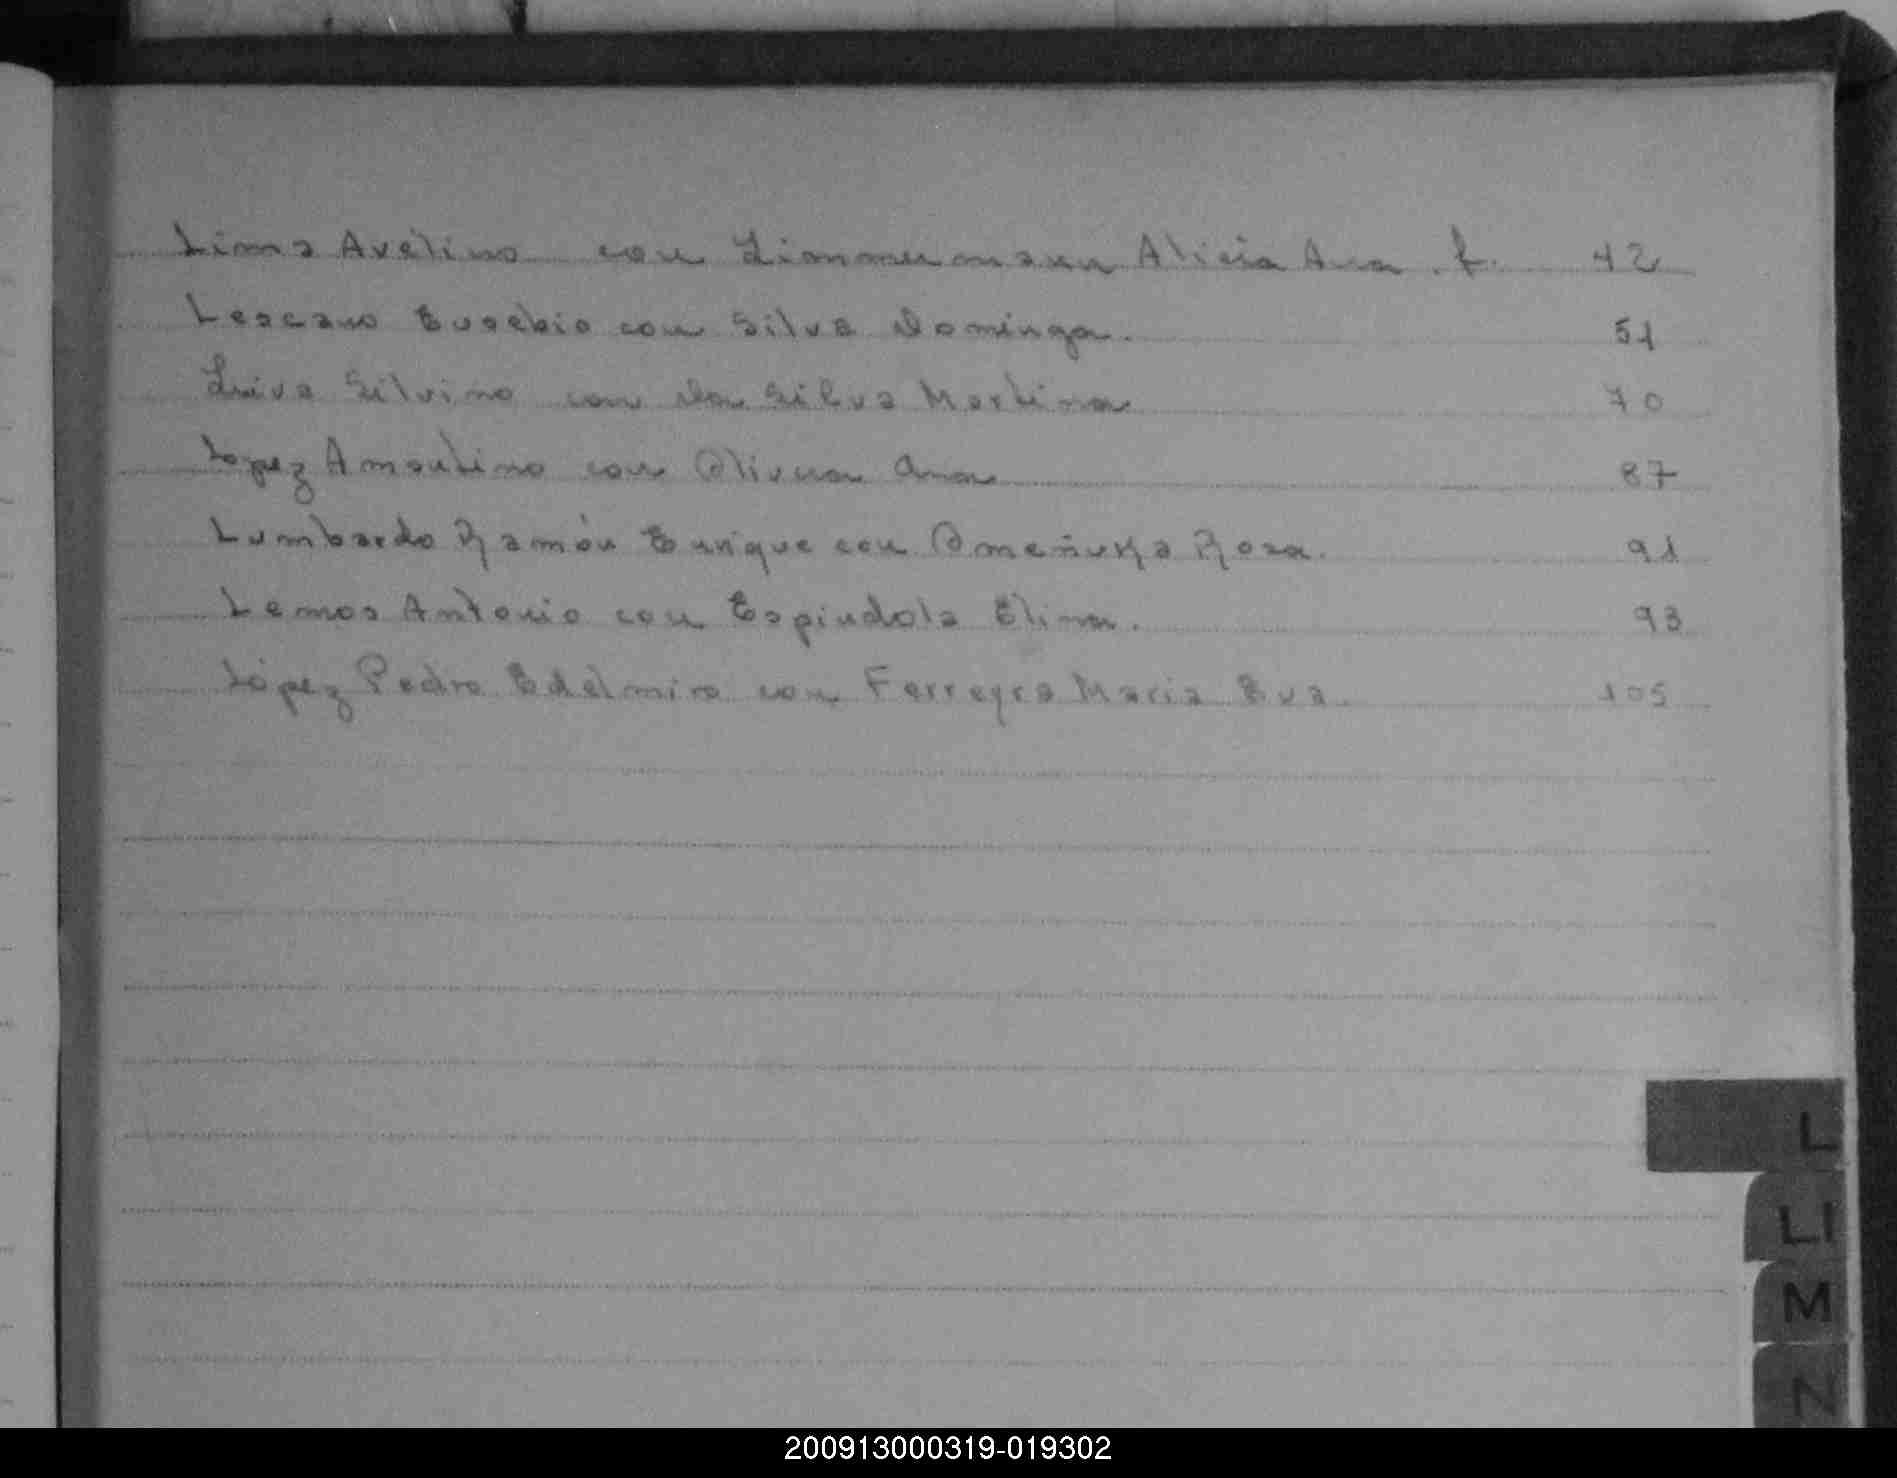 Lima Avelino con Zimmermann Alicia Ana . f. 42
Lescano Eusebio con Silva Dominga. 51
Leiva Silvino con Da Silva Martina 70
Lopez Amantino con Olivera Ana 87
Lumbardo Ramón Enrique con Rosa. 91
Lemos Antonio con Espindola Elina. 93
López Pedro Edelmiro con Ferreyra Maria Eva. 105
L
LI
M
N
200913000319-019302